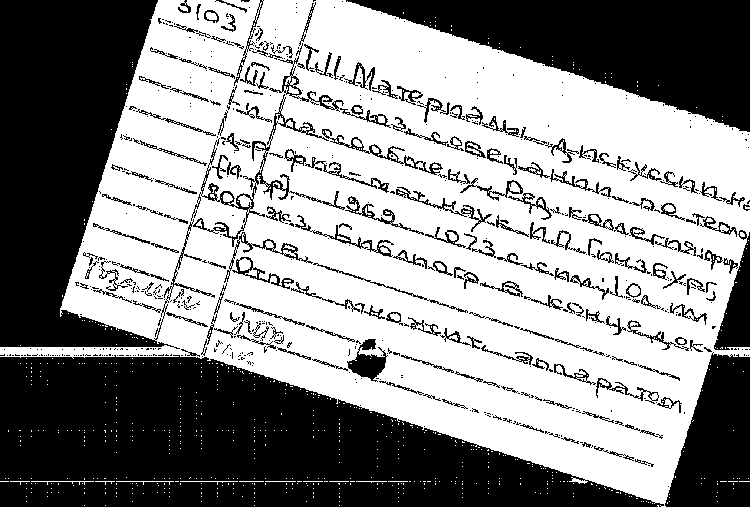 3103
Т.11 Материалы дискуссии на
III Всесоюз. совещании по тепло-
и массообмену. Ред. коллегия:
д-р физ-мат. наук И.П. Гинзбург,
[и др]. 1969. 1073 с. с ил; 10 л. ил.
800 экз. Библиогр. в конце док-
ладов.
Отпеч. множит. аппаратом.